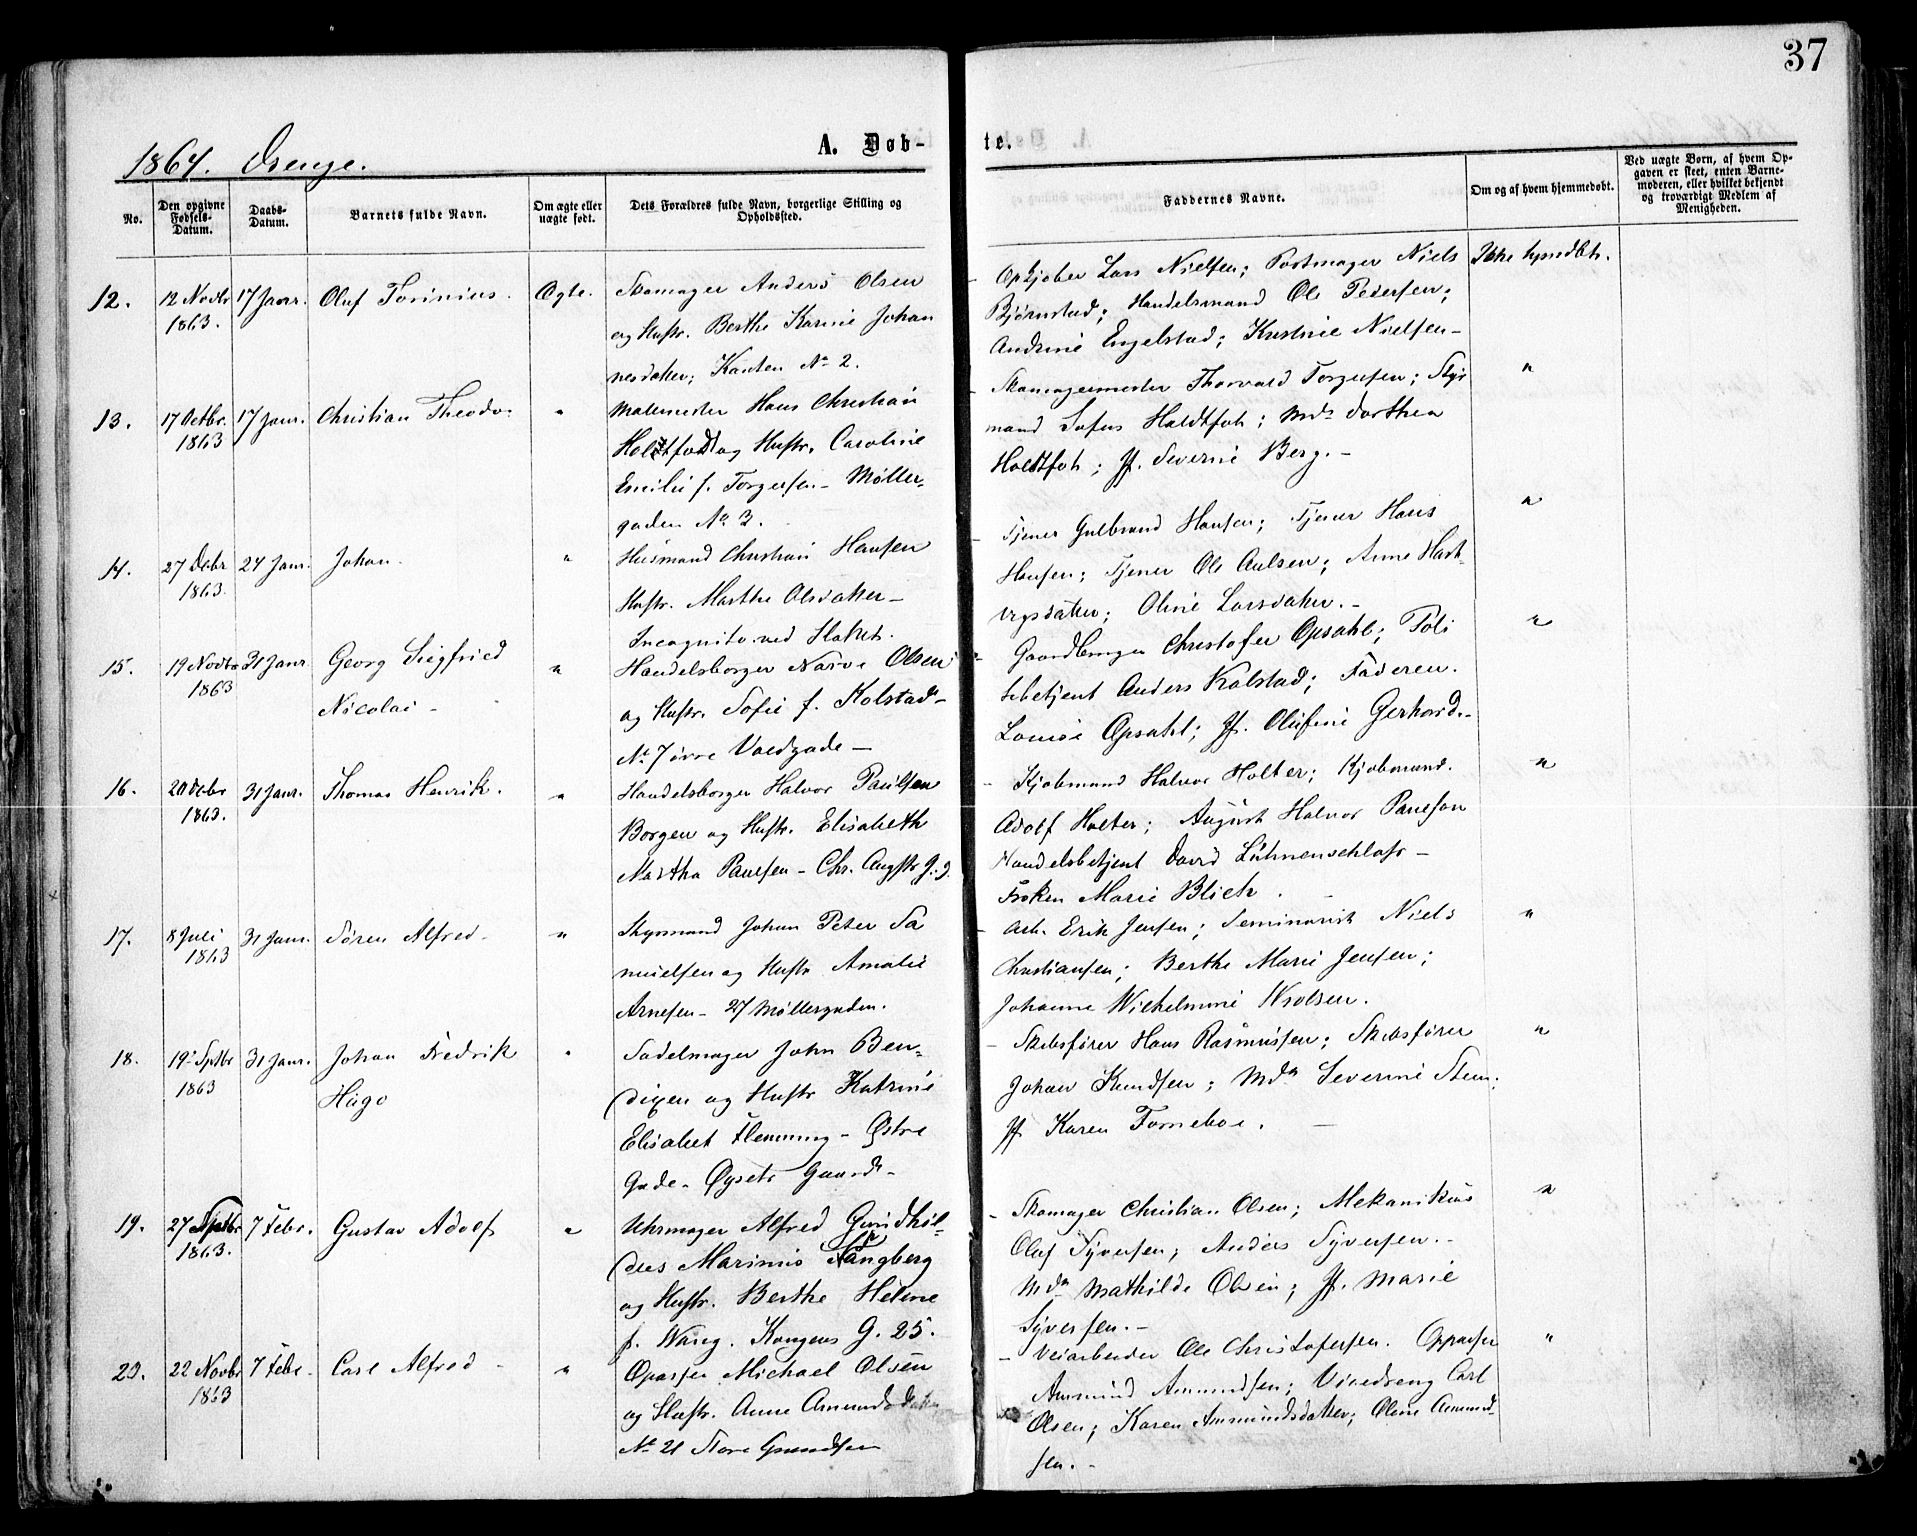 37
1864. Drenge.
A. Døb-
te.
No.
Den opgivne Fødsels-Datum.
Daabs-Datum.
Barnets fulde Navn.
Om ægte eller uægte født.
Dets Forældres fulde Navn, borgerlige Stilling og Opholdssted.
Faddernes Navne.
Om og af hvem hjemmedøbt.
Ved uægte Børn, af hvem Opgaven er skeet, enten Barnemoderen, eller hvilket bekjendt og troværdigt Medlem af Menigheden.
12. 12 Novbr 1863. 17 Janr. Oluf Torinius. Ægte.
Skomager Anders Olsen
og Hustr. Berthe Karine Johan
nesdatter; Kanten No 2.
Opkjøber Lars Nielsen; Postmager Niels
Bjørnstad; Handelsmand Ole Pedersen;
Andrine Engelstad; Kristine Nielsen-
Ikke hjmdbt.
13. 17 Octbr. 1863 17 Janr. Christian Theodor "
Malemester Hans Christian
og Hustr. Caroline
Emilie f. Torgersen - Møller-
gaden No 3.
Skomagermester Thorvald Torgersen; Styr
mand Sofus Holdtfoh; Md. Dorthea
Holdtfoh; Jf. Severine Berg.-
"
14. 27 Debr 1863. 24 Janr. Johan. "
Husmand Christian Hansen
Hustr. Marthe Olsdatter-
Incognito ved
Tjener Gulbrand Hansen; Tjener Hans
Hansen; Tjener Ole Aulsen; Anne Hart-
vigsdatter; Oline Larsdatter.-
"
15. 19 Novbr 1863 31 Janr Georg Siegfried
Nicolai - "
Handelsborger Narve Olsen
og Hustr. Sofie f. Kolstad-
No 7 øvre Voldgade-
Gaardbruger Christofer Opsahl; Poli
tibetjent Anders Kolstad; Faderen.
Louise Opsahl; Jf. Olufine Gerhard.-
"
16. 20 Debr 1863. 31 Janr. Thomas Henrik. "
Handelsborger Halvor Paulsen
Borgen og Hustr. Elisabeth
Martha Paulsen - Chr. Augstr G. 9.
- Kjøbmand Halvor Holter; Kjøbmand.
Adolf Holter; August Halvor Paulson
Handelsbetjent David Lühnenschloss-
Frøken Marie Blich. -
"
17. 8 Juli 1863 31 Janr. Søren Alfred- "
Styrmand Johan Peter Sa
muelsen og Hustr Amalie
Arnesen - 27 Møllergaden.
- Arb. Erik Jensen; Seminarist Niels
Christiansen; Berthe Marie Jensen;
Johanne Wilhelmine Nielsen.
"
18. 19 Septbr 1863 31 Janr. Johan Fredrik
Hugo "
Sadelmager John Ben-
dixen og Hustr Katrine
Elisabet Flemming - Østre
Gade - Øysets Gaard-
- Skibsfører Hans Rasmussen; Skibsfører
Johan Knudsen; Mdm Severine Steen.
Jf Karen Torneboe. -
"
19. 27 Septbr 1863. 7 Febr. Gustav Adolf "
Uhrmager Alfred
Marinius Langberg
og Hustr. Berthe Helene
f. Wang. Kongens G. 25.
- Skomager Christian Olsen; Mekanikus
Oluf Syversen; Anders Syversen.-
Mdm Mathilde Olsen; Jf. Marie
Syversen.-
"
20. 22 Novbr 1863 7 Febr. Carl Alfred - "
Opasser Michael Olsen
og Hustr. Anne Amundsdatter
No 21 Store
- Veiarbeider Ole Christofersen. Oppasser
Ammund Ammundsen; Carl
Olsen; Karen Ammundsdatter; Oline Ammund-
sen.-
"